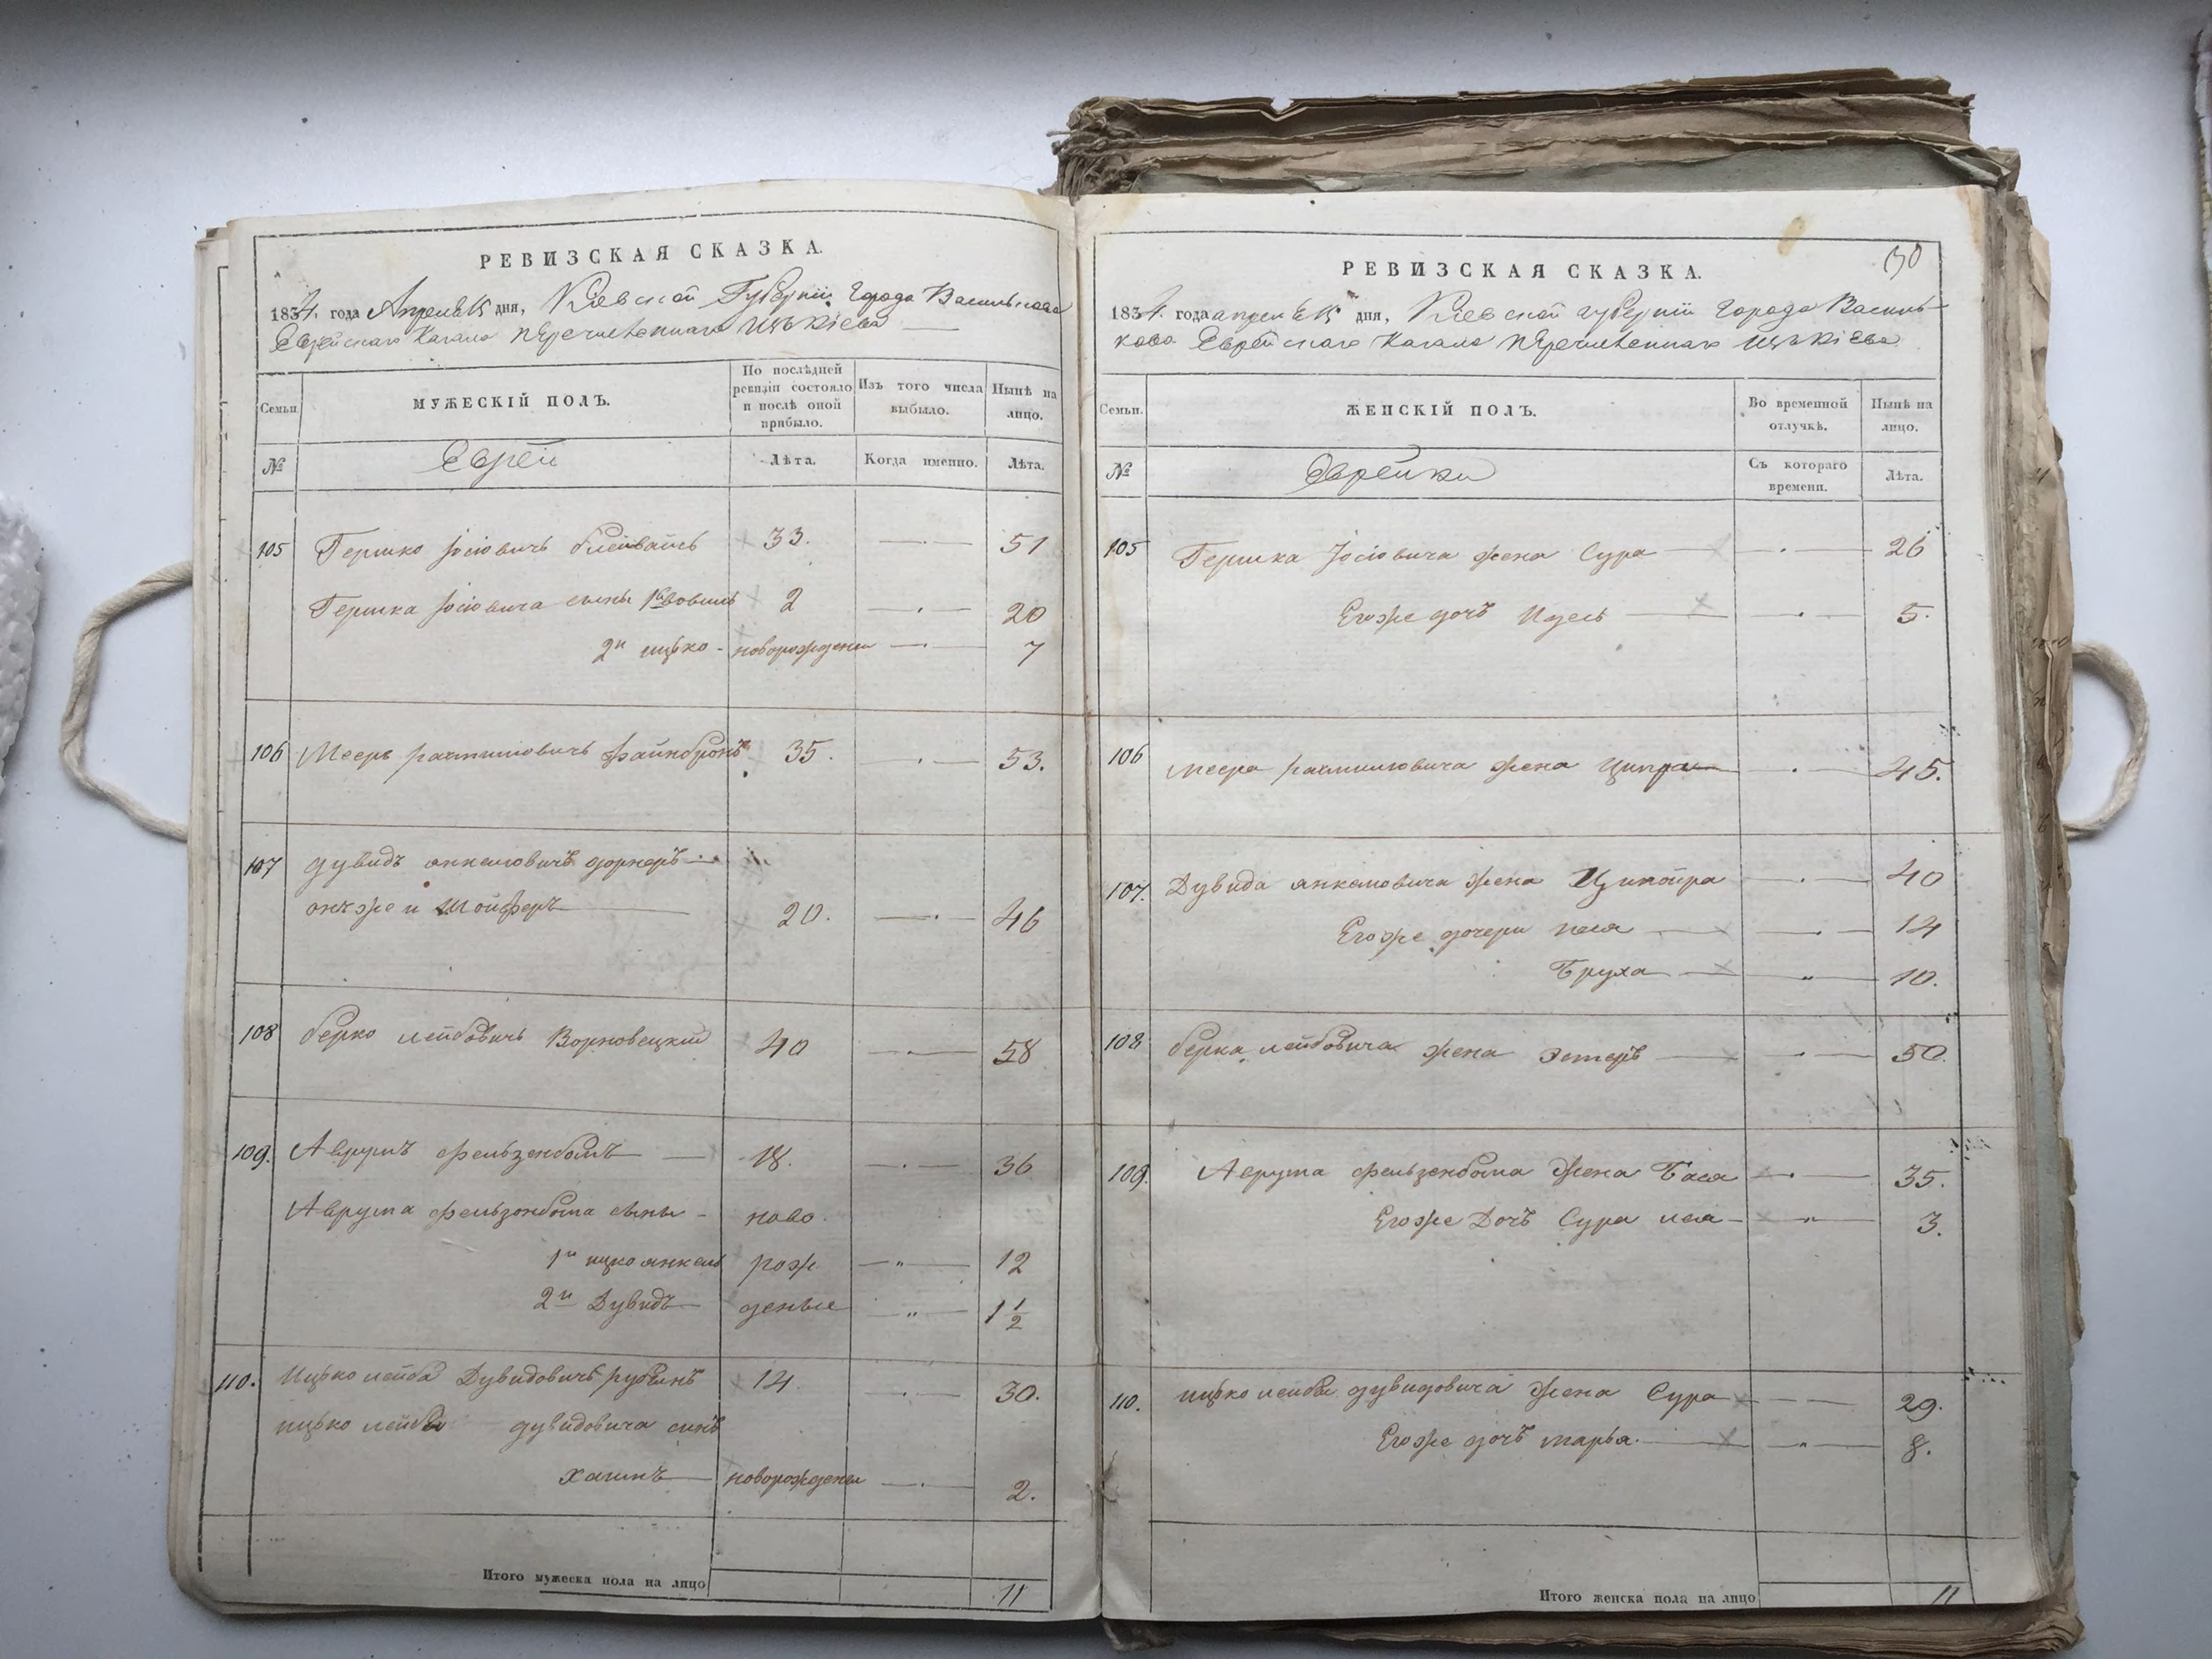 РЕВИЗСКАЯ СКАЗКА.
1834. года Апреля 15 дня, Кіевской Губерніи Города Василькова
Еврейскаго Кагала перечисленнаго изъ Кіева
Семьи.
МУЖЕСКІЙ ПОЛЪ.
По послѣдней ревизіи состояло и послѣ оной прибыло.
Изъ того числа выбыло.
Нынѣ на лицо.
№
Евреи
Лѣта.
Когда именно.
Лѣта.
105 Гершко Іосіовичъ 33. 51
Гершка Іосіовича сыны 1й 2 20
2й ицко - новорожденн 7
106 Мееръ рахмиловичъ файнбронъ 35. 53.
107 дувидъ анкеловичъ
онъ же и Шойферъ 20. 46
108 берко лейбовичъ 40 58
109. Аврумъ фельзенбомъ 18. 36
Аврума фельзенбома сыны - ново
1й ицко анкель рож 12
2й Дувидъ денные 1 1/2
110. Ицко лейба Дувидовичъ рубинъ 14 30.
ицко лейбы дувидовича сынъ
хаимъ новорожденн 2.
Итого мужеска пола на лицо 11
130
РЕВИЗСКАЯ СКАЗКА.
1834. года апреля 15 дня, Кіевской губерніи Города Василь-
кова Еврейскаго Кагала перечисленнаго изъ Кіева
Семьи.
ЖЕНСКІЙ ПОЛЪ.
Во временной отлучкѣ.
Нынѣ на лицо.
№
Еврейки
Съ котораго времени.
Лѣта.
105 Гершка Іосіовича жена Сура 26
Егоже дочъ Идесь 5.
106 меера рахмиловича жена Ципра 45.
107. Дувида анкеловича жена Ципойра 40
Егоже дочери 14
Бруха 10.
108 берка лейбовича жена Эстеръ 50.
109. Аврума фельзенбома жена Бася 35.
Егоже Дочъ Сура лея 3.
110. ицко лейбы дувидовича жена Сура 29.
Егоже дочъ марья 8.
Итого женска пола на лицо 11